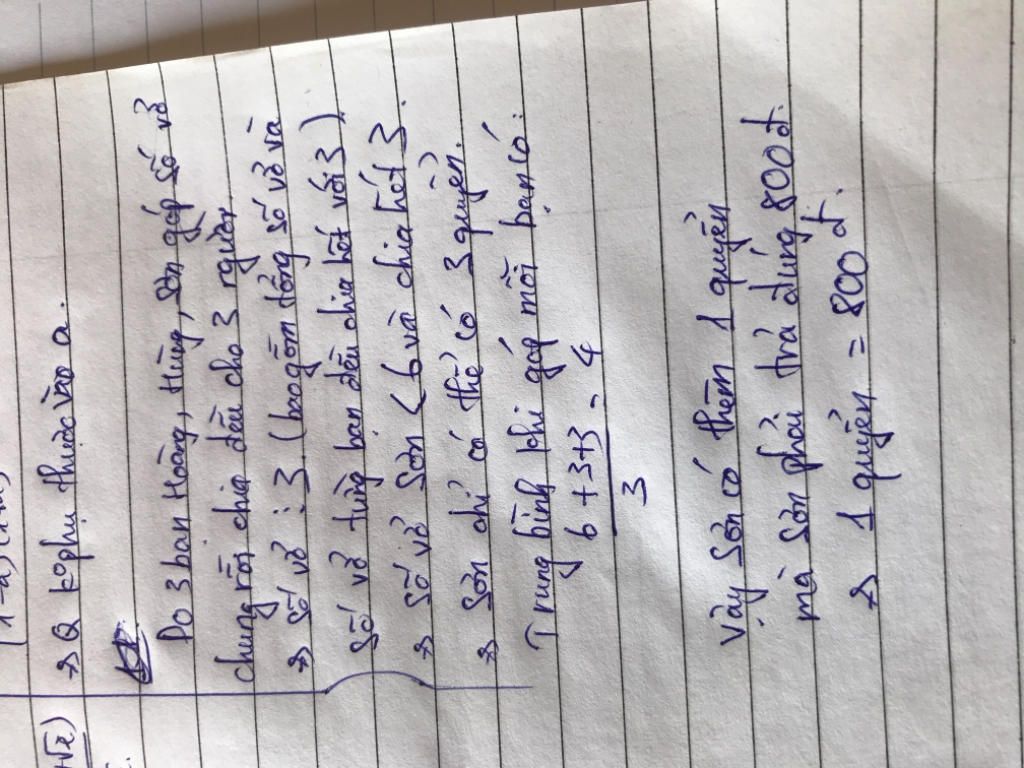 → Q ko phụ thuộc vào a.
Do 3 bạn Hoàng, Hùng, Sơn góp số vở
chung rồi chia đều cho 3 người.
→ Số vở : 3 (bao gồm tổng số vở và
số vở từng bạn đều chia hết với 3)
→ số vở Sơn < 6 và chia hết 3.
→ Sơn chỉ có thể có 3 quyển.
Trung bình khi góp mỗi bạn có:
6 + 3 + 3 = 4
3
Vậy Sơn có thêm 1 quyển
mà Sơn phải trả đúng 800 đ.
→ 1 quyển = 800 đ.